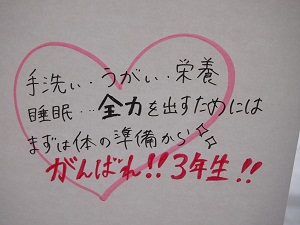 手洗い・うがい・栄養
睡眠…全力を出すためには
まずは体の準備から✨
がんばれ!!3年生!!